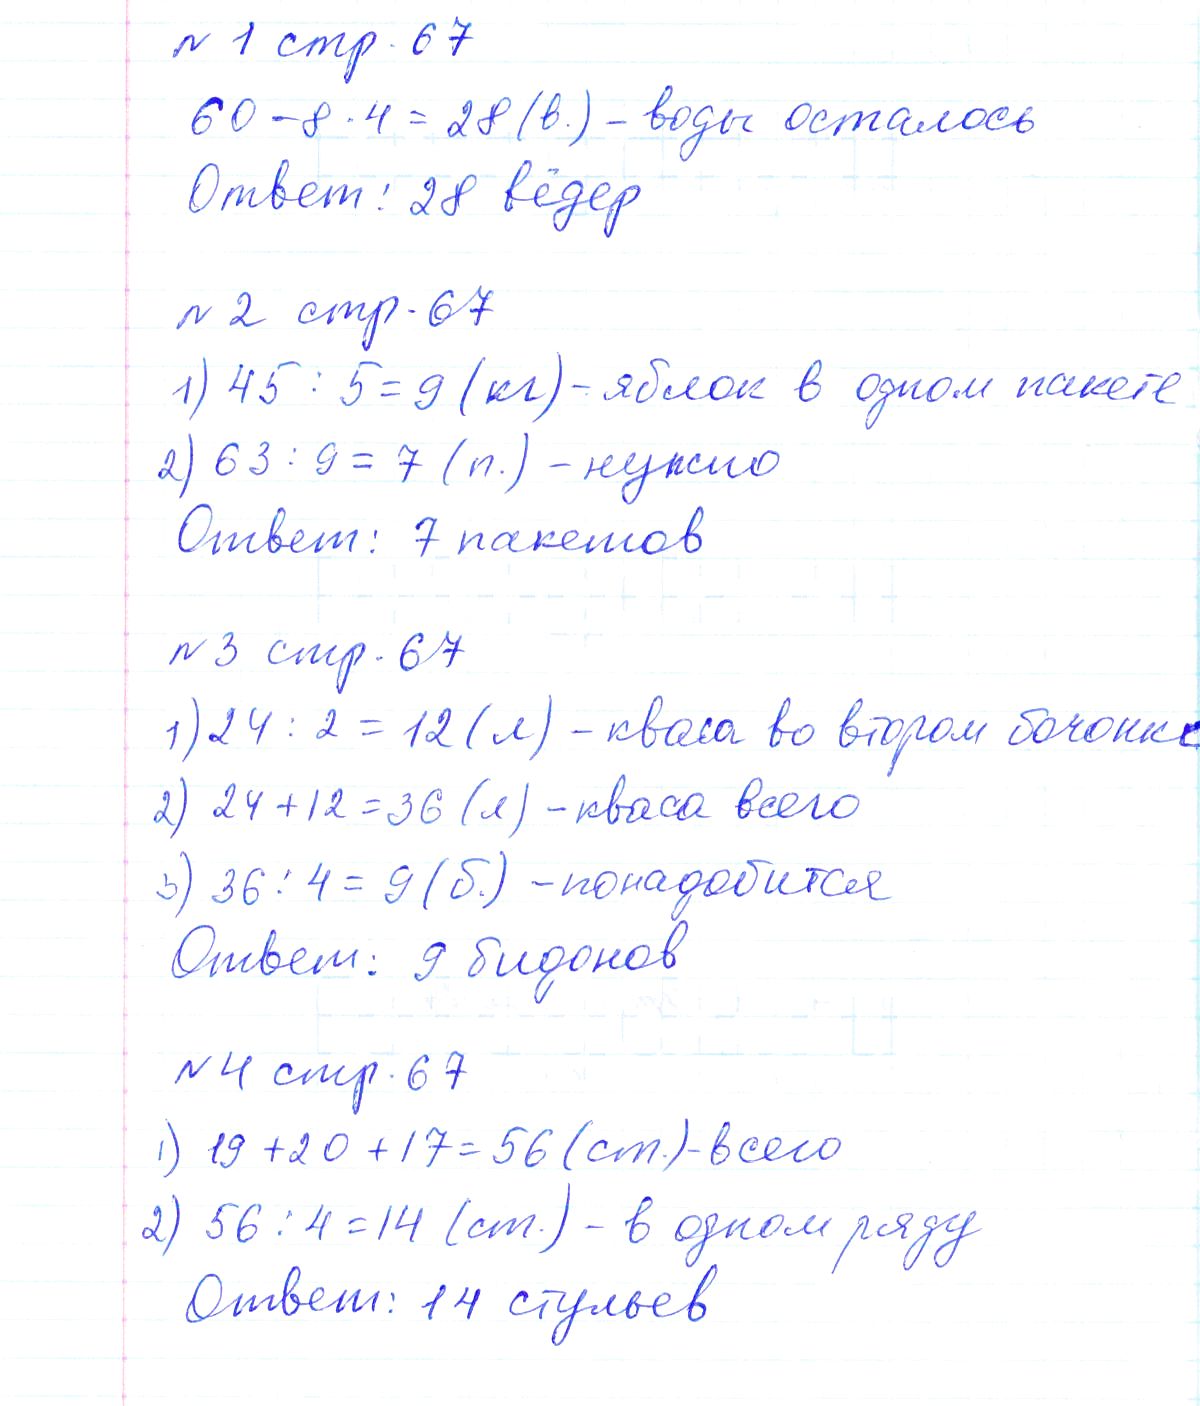 № 1 стр. 67
60 - 8 · 4 = 28 (в.) - воды осталось
Ответ: 28 вёдер
№ 2 стр. 67
1) 45 : 5 = 9 (кг) - яблок в одном пакете
2) 63 : 9 = 7 (п.) - нужно
Ответ: 7 пакетов
№ 3 стр. 67
1) 24 : 2 = 12 (л) - кваса во втором бочонке
2) 24 + 12 = 36 (л) - кваса всего
3) 36 : 4 = 9 (б.) - понадобится
Ответ: 9 бидонов
№ 4 стр. 67
1) 19 + 20 + 17 = 56 (ст.) - всего
2) 56 : 4 = 14 (ст.) - в одном ряду
Ответ: 14 стульев